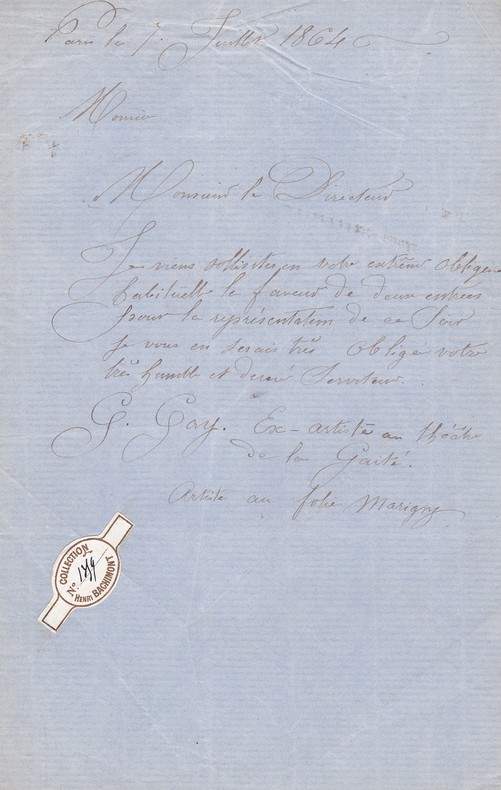 Paris le 7. Juillet 1864
Monsieur
Monsieur le Directeur
Je viens sollisiter en votre extrême obligeance
habituelle la faveur de deux entrées
pour la représentation de ce Soir
je vous en serais très obligé votre
très humble et Serviteur.
G. Gay. Ex-artiste au théâtre
de la Gaité.
Artiste au folie Marigny
COLLECTION
N°
HENRI BACHIMONT